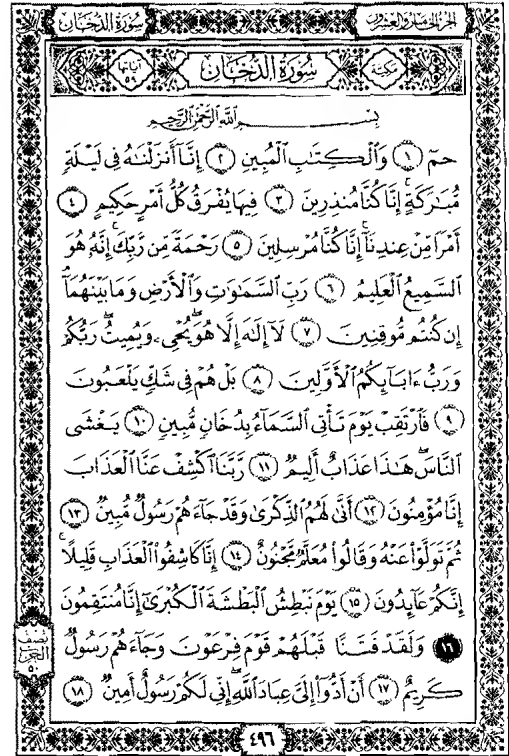 الجزء الخامس والعشرون
سورة الدخان
مكية
سُورَةُ الدُّخَانِ
آياتها ٥٩
بِسْمِ اللَّهِ الرَّحْمَٰنِ الرَّحِيمِ
حمٓ ﴿١﴾ وَٱلْكِتَٰبِ ٱلْمُبِينِ ﴿٢﴾ إِنَّآ أَنزَلْنَٰهُ فِى لَيْلَةٍ
مُّبَٰرَكَةٍ ۚ إِنَّا كُنَّا مُنذِرِينَ ﴿٣﴾ فِيهَا يُفْرَقُ كُلُّ أَمْرٍ حَكِيمٍ ﴿٤﴾
أَمْرًا مِّنْ عِندِنَآ ۚ إِنَّا كُنَّا مُرْسِلِينَ ﴿٥﴾ رَحْمَةً مِّن رَّبِّكَ ۚ إِنَّهُۥ هُوَ
ٱلسَّمِيعُ ٱلْعَلِيمُ ﴿٦﴾ رَبِّ ٱلسَّمَٰوَٰتِ وَٱلْأَرْضِ وَمَا بَيْنَهُمَآ ۖ
إِن كُنتُم مُّوقِنِينَ ﴿٧﴾ لَآ إِلَٰهَ إِلَّا هُوَ يُحْىِۦ وَيُمِيتُ ۖ رَبُّكُمْ
وَرَبُّ ءَابَآئِكُمُ ٱلْأَوَّلِينَ ﴿٨﴾ بَلْ هُمْ فِى شَكٍّ يَلْعَبُونَ
﴿٩﴾ فَٱرْتَقِبْ يَوْمَ تَأْتِى ٱلسَّمَآءُ بِدُخَانٍ مُّبِينٍ ﴿١٠﴾ يَغْشَى
ٱلنَّاسَ ۖ هَٰذَا عَذَابٌ أَلِيمٌ ﴿١١﴾ رَّبَّنَا ٱكْشِفْ عَنَّا ٱلْعَذَابَ
إِنَّا مُؤْمِنُونَ ﴿١٢﴾ أَنَّىٰ لَهُمُ ٱلذِّكْرَىٰ وَقَدْ جَآءَهُمْ رَسُولٌ مُّبِينٌ ﴿١٣﴾
ثُمَّ تَوَلَّوْا۟ عَنْهُ وَقَالُوا۟ مُعَلَّمٌ مَّجْنُونٌ ﴿١٤﴾ إِنَّا كَاشِفُوا۟ ٱلْعَذَابِ قَلِيلًا ۚ
إِنَّكُمْ عَآئِدُونَ ﴿١٥﴾ يَوْمَ نَبْطِشُ ٱلْبَطْشَةَ ٱلْكُبْرَىٰٓ إِنَّا مُنتَقِمُونَ
﴿١٦﴾ وَلَقَدْ فَتَنَّا قَبْلَهُمْ قَوْمَ فِرْعَوْنَ وَجَآءَهُمْ رَسُولٌ
كَرِيمٌ ﴿١٧﴾ أَنْ أَدُّوٓا۟ إِلَىَّ عِبَادَ ٱللَّهِ ۖ إِنِّى لَكُمْ رَسُولٌ أَمِينٌ ﴿١٨﴾
نصف
الحزب
٥٠
٤٩٦